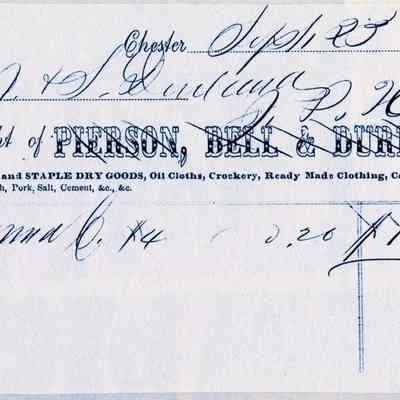 Chester Sept 23
& S. Durland
ht of PIERSON, BELL & DUR
and STAPLE DRY GOODS, Oil Cloths, Crockery, Ready Made Clothing, C
h, Pork, Salt, Cement, &c., &c.
$4 .20 $